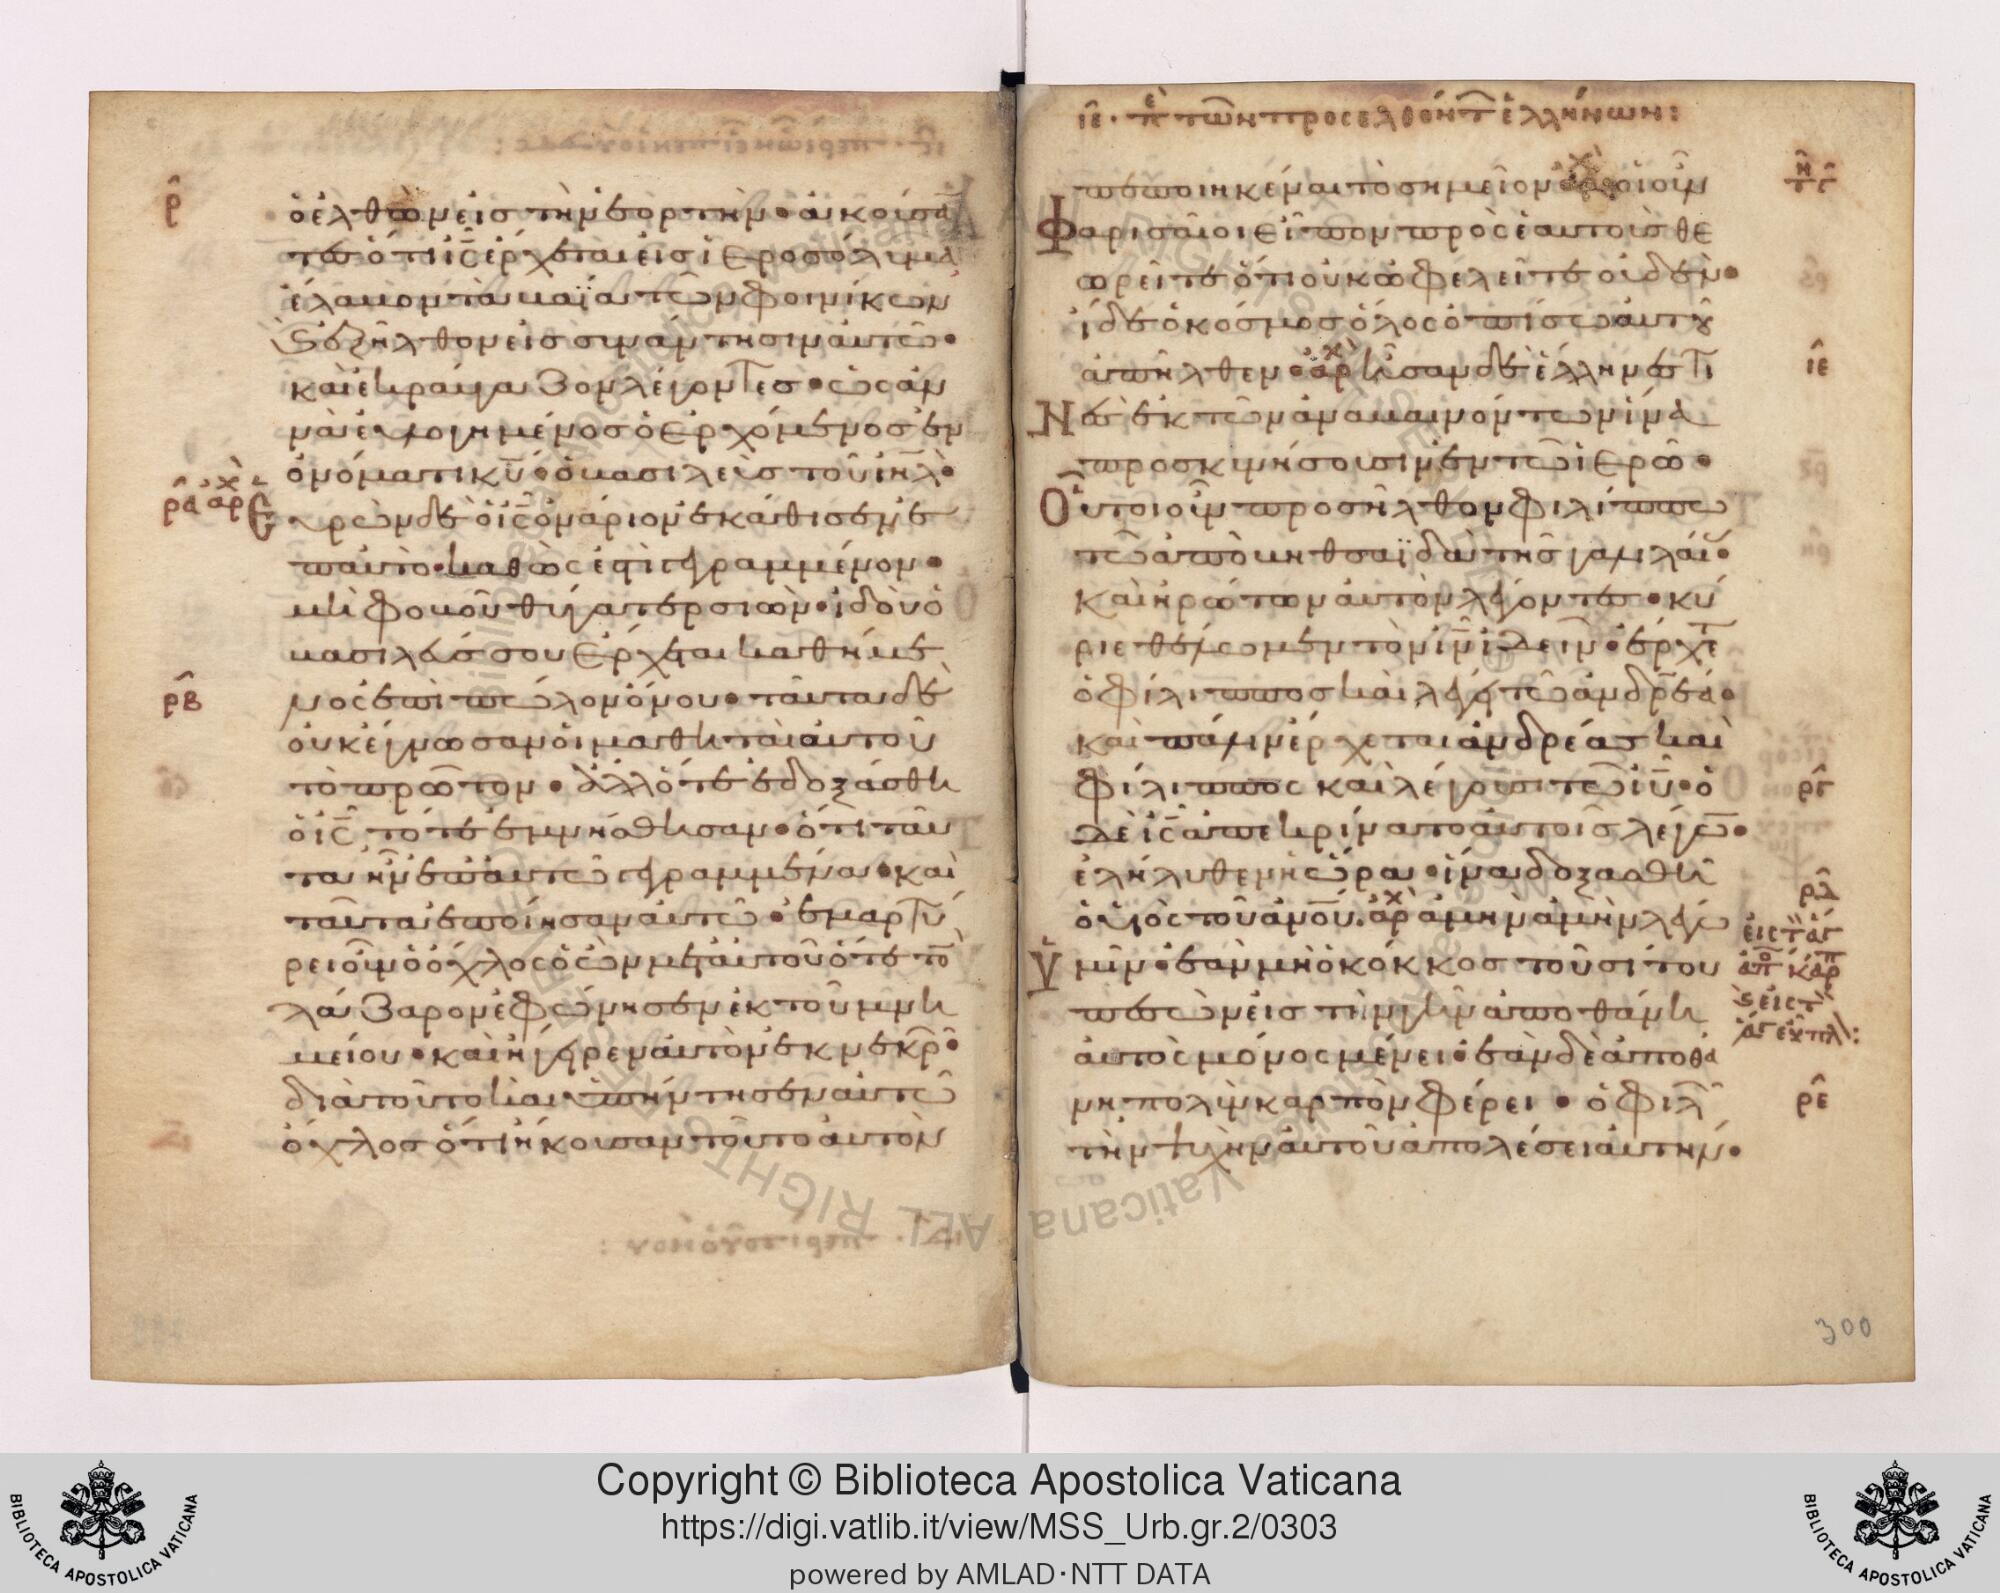 ρ̄
ὁ ἐλθὼν εἰς τὴν ἑορτὴν· ἀκούσα
τες ὅτι ις̄ ἔρχεται εἰς ἱεροσόλυμα
ἔλαβον τὰ βαΐα τῶν φοινίκων
ϗ ἐξῆλθον εἰς συνάντησιν αὐτῶ·
καὶ ἔκραύγαζον λέγοντες· ὡς ἀν
ναὶ εὐλογημένος ὁ ἐρχόμενος ἐν
ὀνόματι κῡ· ὁ βασιλεὺς τοῦ ιηλ̄·
ρ̄α ἀρχ
Εὑρὼν δὲ ὁ ις̄ ὀνάριον ἐκάθισεν ἐ
π αὐτὸ· καθὼς ἐστὶ γεγραμμένον·
μὴ φοβοῦ θύγατερ σιών· ἰδοὺ ὁ
βασιλεύς σου ἔρχεται καθήμε
ρ̄β
νος ἐπὶ πῶλον ὄνου· ταῦτα δὲ
οὐκ ἔγνωσαν οἱ μαθηταὶ αὐτοῦ
τὸ πρῶτον· ἀλλ' ὅτε ἐδοξάσθη
ὁ ις̄ τότε ἐμνήσθησαν· ὅτι ταῦ
τα ἦν ἐπ' αὐτῶ γεγραμμένα· καὶ
ταῦτα ἐποίησαν αὐτῶ· ἐμαρτύ
ρει οὖν ὁ ὄχλος ὁ ὢν μετ' αὐτοῦ ὅτε τὸν
λάζαρον ἐφώνησεν ἐκ τοῦ μνη
μείου· καὶ ἤγειρεν αὐτὸν ἐκ νεκρῶ·
διὰ τοῦτο καὶ ὑπήντησεν αὐτῶ
ὄχλος ὅτι ἤκουσαν τοῦτο αὐτὸν
ιε· πε τῶν προσελθόντ ἑλλήνων:
πεποιηκέναι τὸ σημεῖον· οἱ οὖν
Φαρισαῖοι εἶπον πρὸς ἑαυτοὺς θε
ωρεῖτε ὅτι οὐκ ὠφελεῖτε οὐδὲν·
ἴδε ὁ κόσμος ὅλος ὀπίσω αὐτοῦ
ιε
ἀπῆλθεν· ἀρχ ἦσαν δὲ ἕλληνες τι
Νὲς ἐκ τῶν ἀναβαινόντων ἵνα
προσκυνήσουσιν ἐν τῶ ἱερῶ·
Οὗτοι οὖν προσῆλθον φιλίππω
τῶ ἀπὸ βηθσαϊδὰ τῆς γαλιλαί·
Καὶ ἠρώτων αὐτὸν λέγοντες· κύ
ριε θέλομεν τὸν ιν̄ ἰδεῖν· ἔρχετ
ὁ φίλιππος καὶ λέγει τῶ ἀνδρέα·
καὶ πάλιν ἔρχεται ἀνδρέας καὶ
ρ̄γ
φίλιππος καὶ λέγουσι τῶ ιῡ· ὁ
δὲ ις̄ ἀπεκρίνατο αὐτοῖς λέγων·
ἐλήλυθεν ἡ ὥρα· ἵνα δοξασθῆ
ρ̄δ
ὁ υἱὸς τοῦ ἀνοῡ· ἀρχ ἀμὴν ἀμὴν λέγω
Ὑμῖν· ἐὰν μὴ ὁ κόκκος τοῦ σίτου
πεσὼν εἰς τὴν γῆν ἀποθάνη
αὐτὸς μόνος μένει· ἐὰν δὲ ἀποθά
ρ̄ε
νη πολὺν καρπὸν φέρει· ὁ φιλῶ
τὴν ψυχὴν αὐτοῦ ἀπολέσει αὐτήν·
300
BIBLIOTECA APOSTOLICA VATICANA
Copyright © Biblioteca Apostolica Vaticana
https://digi.vatlib.it/view/MSS_Urb.gr.2/0303
powered by AMLAD·NTT DATA
BIBLIOTECA APOSTOLICA VATICANA